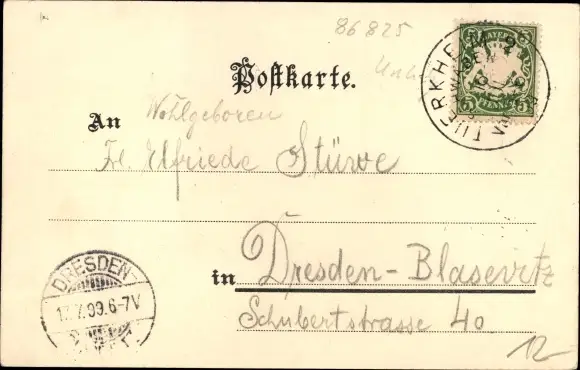 86825
BAYERN
5 PFENNIG 5
TUERKHEIM
Postkarte.
An Wohlgeboren
Frl. Elfriede Stürve
in Dresden-Blasewitz
Schubertstrasse 40
12
DRESDEN
17.7.99.6-7V